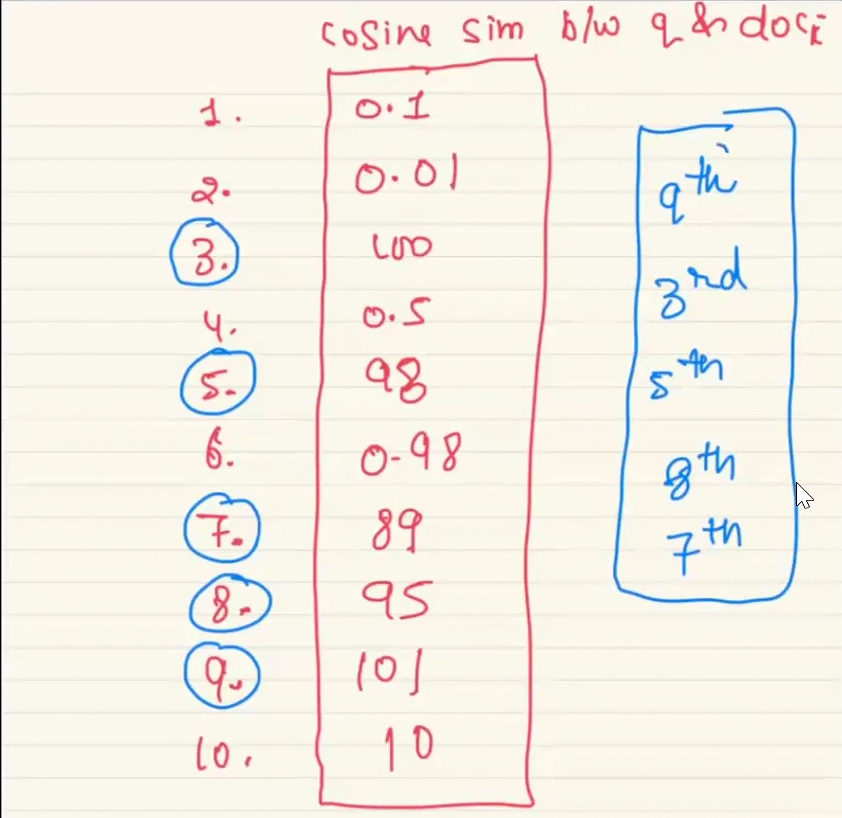 cosine sim b/w q & doci
1. 0.1
2. 0.01
3. 100
4. 0.5
5. 98
6. 0.98
7. 89
8. 95
9. 101
10. 10
9th
3rd
5th
8th
7th